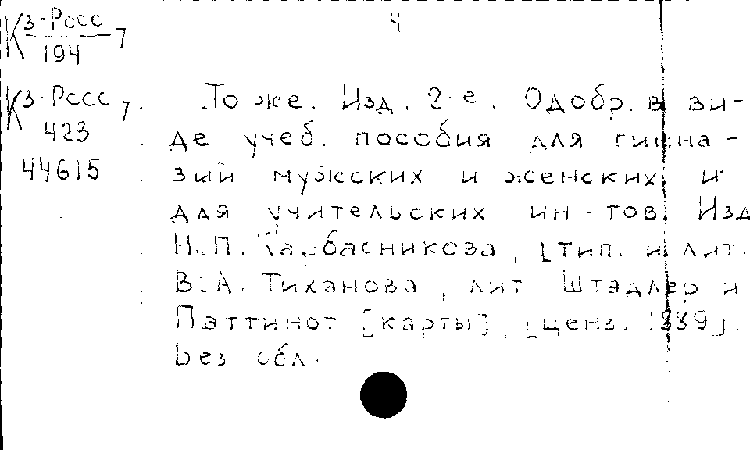 К 3-Росс 7
194
4
К 3-Росс 7
423
44615
То же. Изд. 2-е. Одобр. в ви-
де учеб. пособия для гимна-
зий мужских и женских и
для учительских ин-тов. Изд
Н.П. Карбасникова, [тип. и лит.
В.А. Тиханова, лит Штадлер и
Паттинот [карты], [ценз. 1889].
Без обл.